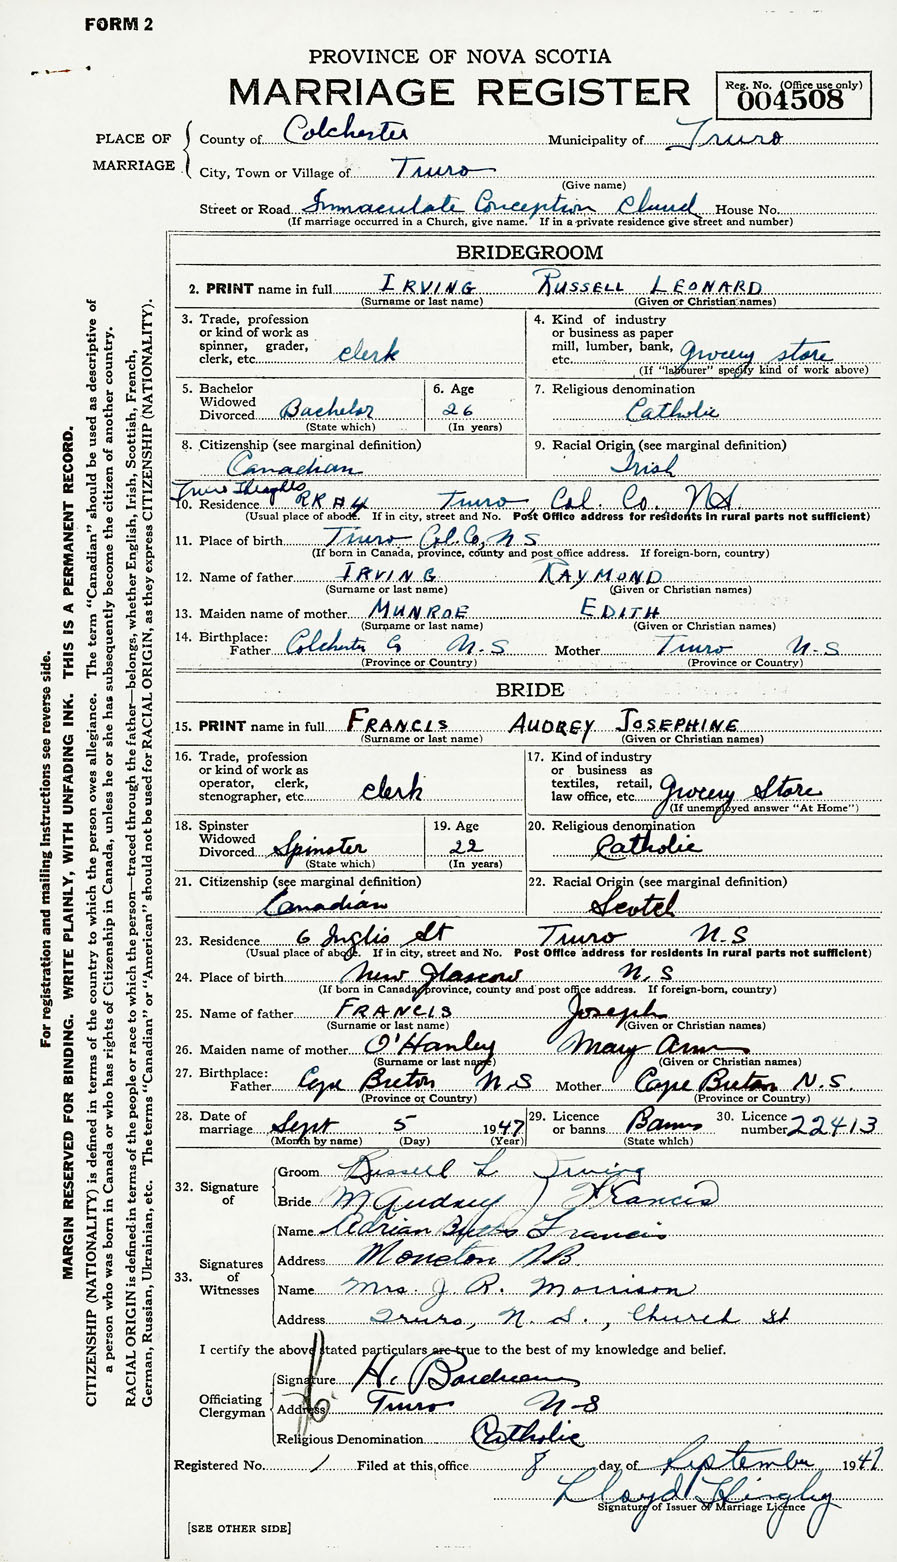 FORM 2
PROVINCE OF NOVA SCOTIA
MARRIAGE REGISTER
Reg. No. (Office use only)
004508
PLACE OF MARRIAGE
County of Colchester Municipality of Truro
City, Town or Village of Truro
(Give name)
Street or Road Immaculate Conception Church House No.
(If marriage occurred in a Church, give name. If in a private residence give street and number)
BRIDEGROOM
2. PRINT name in full IRVING RUSSELL LEONARD
(Surname or last name) (Given or Christian names)
3. Trade, profession or kind of work as spinner, grader, clerk, etc. clerk
4. Kind of industry or business as paper mill, lumber, bank, etc. grocery store
(If "labourer" specify kind of work above)
5. Bachelor Widowed Divorced Bachelor
(State which)
6. Age 26
(In years)
7. Religious denomination Catholic
8. Citizenship (see marginal definition) Canadian
9. Racial Origin (see marginal definition) Irish
10. Residence RR #4 Truro Col. Co. NS
(Usual place of abode. If in city, street and No. Post Office address for residents in rural parts not sufficient)
11. Place of birth Truro Col. Co, N S
(If born in Canada, province, county and post office address. If foreign-born, country)
12. Name of father IRVING RAYMOND
(Surname or last name) (Given or Christian names)
13. Maiden name of mother MUNROE EDITH
(Surname or last name) (Given or Christian names)
14. Birthplace: Father Colchester Co N.S Mother Truro N.S
(Province or Country) (Province or Country)
BRIDE
15. PRINT name in full FRANCIS AUDREY JOSEPHINE
(Surname or last name) (Given or Christian names)
16. Trade, profession or kind of work as operator, clerk, stenographer, etc. clerk
17. Kind of industry or business as textiles, retail, law office, etc. Grocery Store
(If unemployed answer "At Home")
18. Spinster Widowed Divorced Spinster
(State which)
19. Age 22
(In years)
20. Religious denomination Catholic
21. Citizenship (see marginal definition) Canadian
22. Racial Origin (see marginal definition) Scotch
23. Residence 6 Inglis St Truro N.S
(Usual place of abode. If in city, street and No. Post Office address for residents in rural parts not sufficient)
24. Place of birth New Glascow N.S
(If born in Canada, province, county and post office address. If foreign-born, country)
25. Name of father FRANCIS Joseph
(Surname or last name) (Given or Christian names)
26. Maiden name of mother O'Hanley Mary Ann
(Surname or last name) (Given or Christian names)
27. Birthplace: Father Cape Breton N.S Mother Cape Breton N.S.
(Province or Country) (Province or Country)
28. Date of marriage Sept 5 1947
(Month by name) (Day) (Year)
29. Licence or banns Banns
(State which)
30. Licence number 22413
32. Signature of
Groom Russell L Irving
Bride M Audrey J Francis
33. Signatures of Witnesses
Name Adrian Francis
Address Moncton NB.
Name Mrs. J. R. Morrison
Address Truro, N. S., Church St
I certify the above stated particulars are true to the best of my knowledge and belief.
Officiating Clergyman
Signature H. Boudreau
Address Truro N-S
Religious Denomination Catholic
Registered No. 1 Filed at this office 8 day of September 1947
Lloyd
Signature of Issuer of Marriage Licence
[SEE OTHER SIDE]
For registration and mailing instructions see reverse side.
MARGIN RESERVED FOR BINDING. WRITE PLAINLY, WITH UNFADING INK. THIS IS A PERMANENT RECORD.
CITIZENSHIP (NATIONALITY) is defined in terms of the country to which the person owes allegiance. The term "Canadian" should be used as descriptive of
a person who was born in Canada or who has rights of Citizenship in Canada, unless he or she has subsequently become the citizen of another country.
RACIAL ORIGIN is defined in terms of the people or race to which the person—traced through the father—belongs, whether English, Irish, Scottish, French,
German, Russian, Ukrainian, etc. The terms "Canadian" or "American" should not be used for RACIAL ORIGIN, as they express CITIZENSHIP (NATIONALITY).